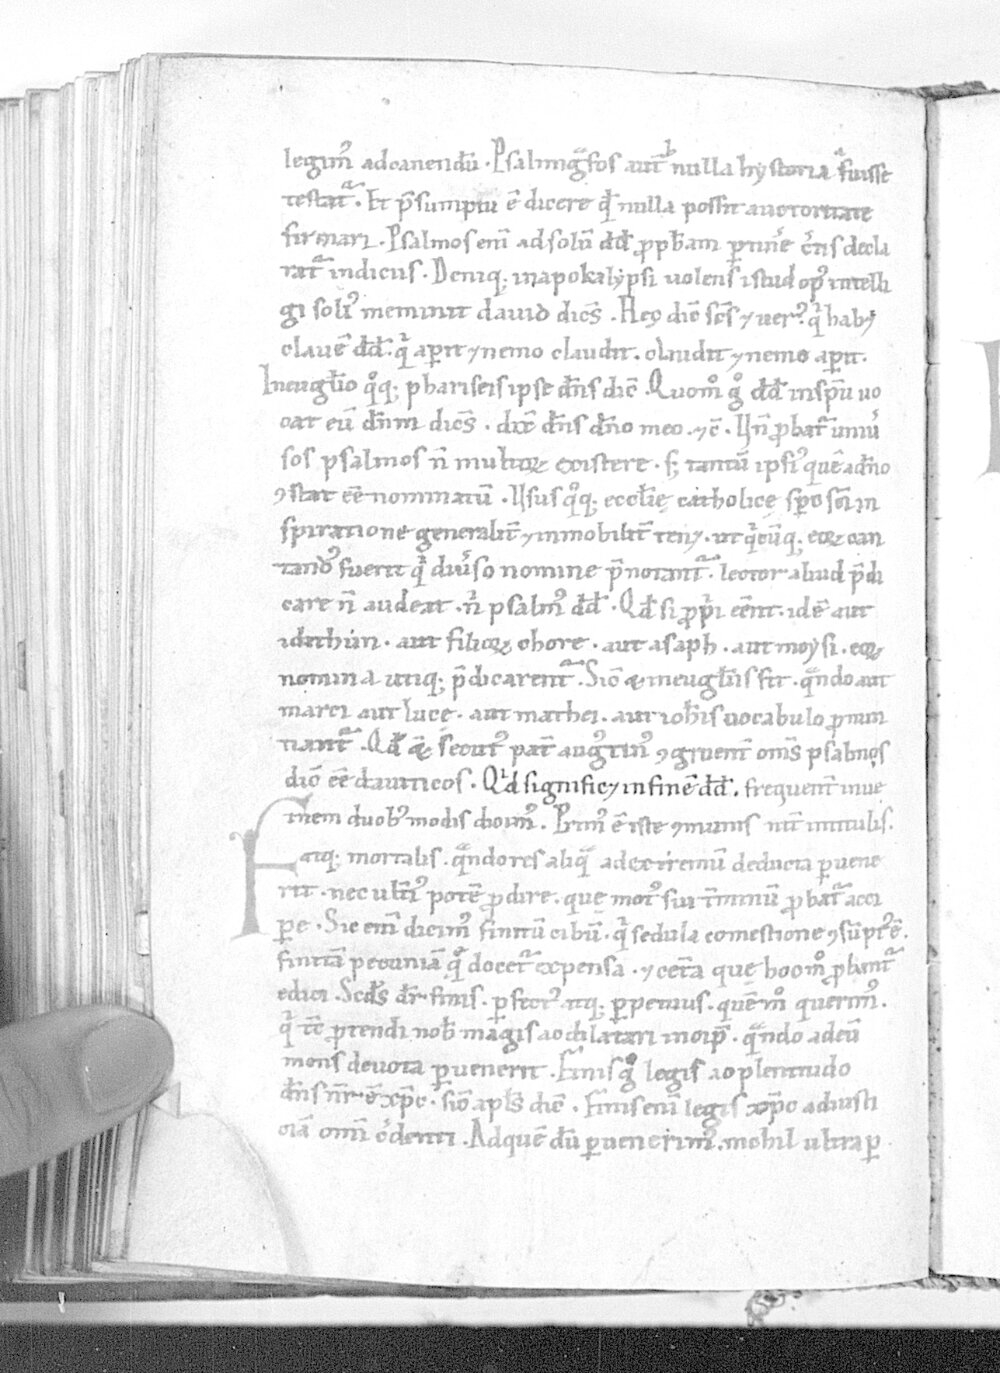 legim᷒ adcanendū . Psalmigͣfos aut̄ nulla hystoria fuisse
testat᷑ . Et p̄sumptiu ē dicere qd̄ nulla possit auctoritate
firmari . Psalmos eni᷒ ad solū dd̄ ꝓph̄am ꝑtinēe c̄tis decla
rat᷑ indicus . Deniq; inapokalypsi uolens istud op᷒ intelli
gi soli᷒ meminit dauid dicēs . Hęc dic̄ sc̄s ⁊ uer᷒ . qͥ habꝫ
clauē dd̄ . qͥ aꝑit ⁊ nemo claudit . claudit ⁊ nemo aꝑit .
Ineuglīo qͦq; phariseis ipse dn̄s dic̄ . Quom̊ gͦ dd̄ inspū uo
cat eū dn̄m dicēs . dix̄ dn̄s dn̄o meo . ⁊c̄ . Hn̄ ꝓbat᷑ uniū
sos psalmos n̄ multoꝝ existere . sꝫ tantū ipsi᷒ quē adn̄o
ꝯstat ēe nominatū . Usus qͦq; ecclīe catholicę sp̄o sc̄i in
spiratione generalit̄ ⁊ inmobilit̄ tenꝫ . ut qͥcūq; eoꝝ can
tand᷒ fuerit qͥ diu᷒so nomine p̄notant᷑ . lector aliud p̄di
care n̄ audeat . n̄ psalm᷒ dd̄ . Qd̄ si ꝓpͥi ēent . idē aut
idithun . aut filioꝝ chore . aut asaph . aut moysi . eoꝝ
nomina utiq; p̄dicarent᷑ . Sic̄ & ineuglīis fit . qͣndo aut
marci aut luce . aut mathei . aut ioh̄is uocabulo ꝓnun
tiant᷑ . Qd̄ & secut᷒ pat̄ augstin᷒ ꝯgruent̄ om̄s psalmos
dic̄ ēe dauiticos . Qͥd significꝫ in finē dd̄ . frequent̄ inue
Finem duob᷒ modis dicim᷒ . Prim᷒ ē iste ꝯmunis nit̄ intitulis .
atq; mortalis . qͣndo res aliqͣ adextremū deducta ꝑuene
rit . nec ulti᷒ potē ꝓdire . que mot᷒ sui t̄minū ꝓbat᷑ acci
pe . Sic eni᷒ dicim᷒ finitū cibū . qͥ sedula comestione ꝯsūpt᷒ ē .
finitā pecuniā qͣ docet᷑ expensa . ⁊ cet̄a que hoc m̊ ꝓbant᷑
edici . Scd̄s dr̄ finis . ꝑfect᷒ atq; ꝑpetuus . quē m̊ querim᷒ .
qͥ tc̄ ꝓtendi nob̄ magis ac dilatari incip̄ . qͣndo adeū
mens deuota ꝑuenerit . Finis gͦ legis ac plenitudo
dn̄s nr̄ ē xp̄c . sic̄ apl̄s dic̄ . Finis eni᷒ legis xp̄c adiusti
ciā omni᷒ c̄denti . Adquē dū ꝑuenerim᷒ . nichil ultra ꝑ